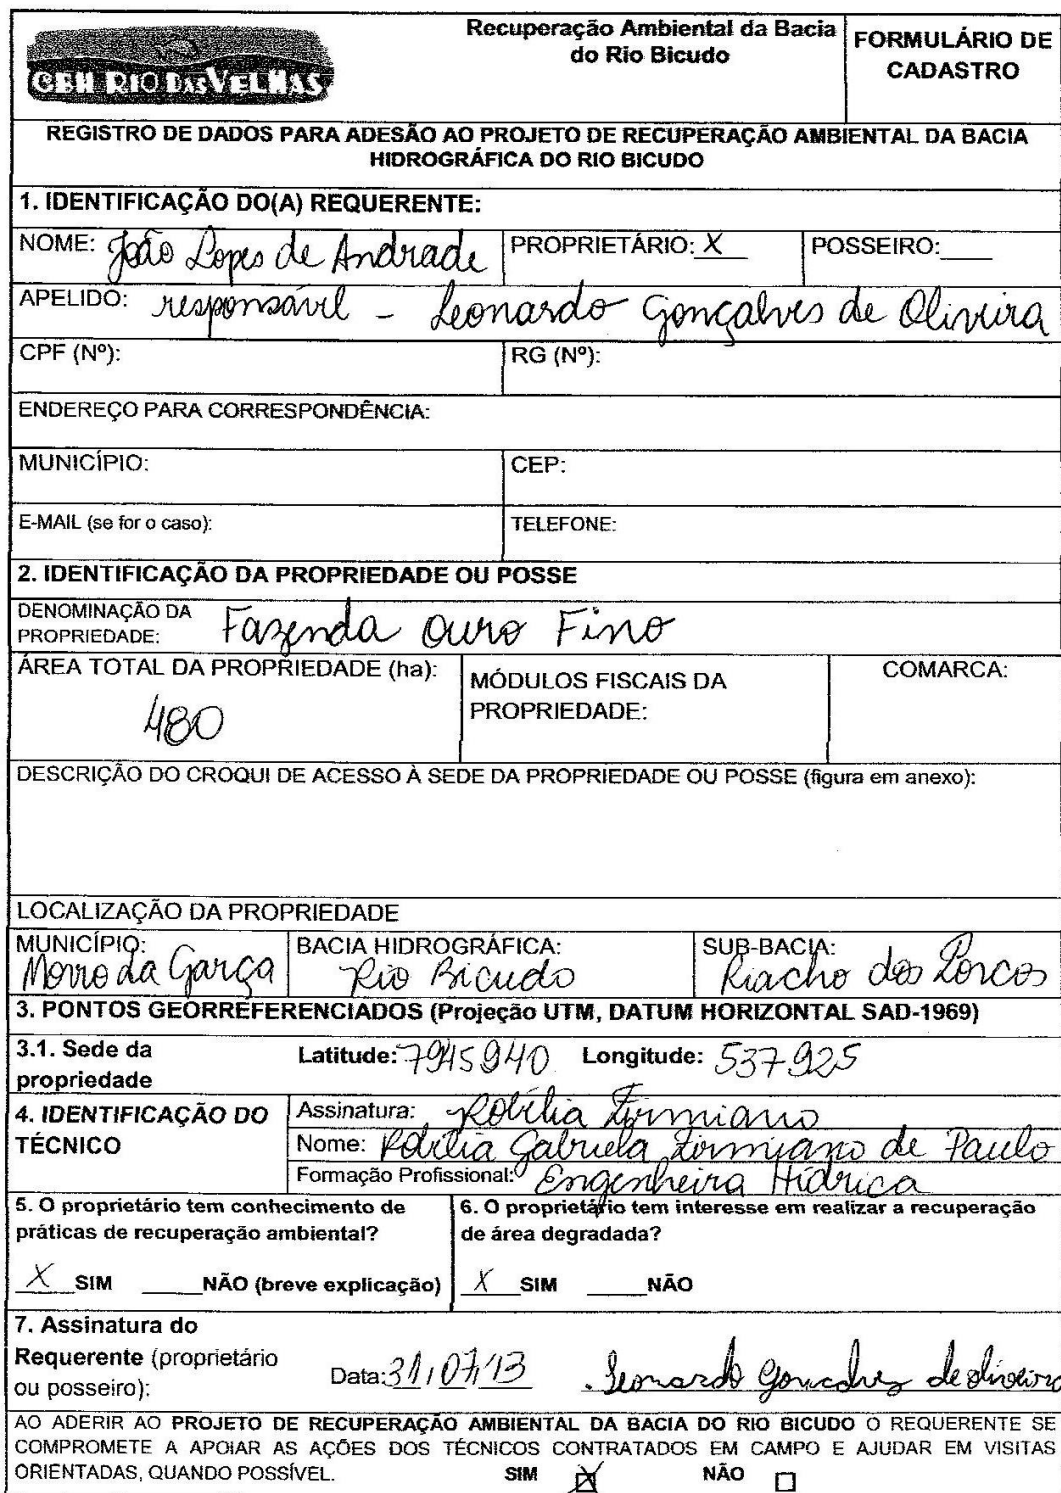 CBH RIO DAS VELHAS
Recuperação Ambiental da Bacia
do Rio Bicudo
FORMULÁRIO DE
CADASTRO
REGISTRO DE DADOS PARA ADESÃO AO PROJETO DE RECUPERAÇÃO AMBIENTAL DA BACIA
HIDROGRÁFICA DO RIO BICUDO
1. IDENTIFICAÇÃO DO(A) REQUERENTE:
NOME: João Lopes de Andrade PROPRIETÁRIO: X POSSEIRO:____
APELIDO: responsável - Leonardo Gonçalves de Oliveira
CPF (Nº): RG (Nº):
ENDEREÇO PARA CORRESPONDÊNCIA:
MUNICÍPIO: CEP:
E-MAIL (se for o caso): TELEFONE:
2. IDENTIFICAÇÃO DA PROPRIEDADE OU POSSE
DENOMINAÇÃO DA
PROPRIEDADE: Fazenda Ouro Fino
ÁREA TOTAL DA PROPRIEDADE (ha):
480
MÓDULOS FISCAIS DA
PROPRIEDADE:
COMARCA:
DESCRIÇÃO DO CROQUI DE ACESSO À SEDE DA PROPRIEDADE OU POSSE (figura em anexo):
LOCALIZAÇÃO DA PROPRIEDADE
MUNICÍPIO:
Morro da Garça
BACIA HIDROGRÁFICA:
Rio Bicudo
SUB-BACIA:
Riacho dos Porcos
3. PONTOS GEORREFERENCIADOS (Projeção UTM, DATUM HORIZONTAL SAD-1969)
3.1. Sede da
propriedade
Latitude: 7945940 Longitude: 537925
4. IDENTIFICAÇÃO DO
TÉCNICO
Assinatura: Robélia Firmiano
Nome: Gabriela Firmiano de Paulo
Formação Profissional: Engenheira Hídrica
5. O proprietário tem conhecimento de
práticas de recuperação ambiental?
X SIM ____NÃO (breve explicação)
6. O proprietário tem interesse em realizar a recuperação
de área degradada?
X SIM ____NÃO
7. Assinatura do
Requerente (proprietário
ou posseiro):
Data: 31/07/13 Leonardo Goncalves de oliveira
AO ADERIR AO PROJETO DE RECUPERAÇÃO AMBIENTAL DA BACIA DO RIO BICUDO O REQUERENTE SE
COMPROMETE A APOIAR AS AÇÕES DOS TÉCNICOS CONTRATADOS EM CAMPO E AJUDAR EM VISITAS
ORIENTADAS, QUANDO POSSÍVEL. SIM ☒ NÃO ☐